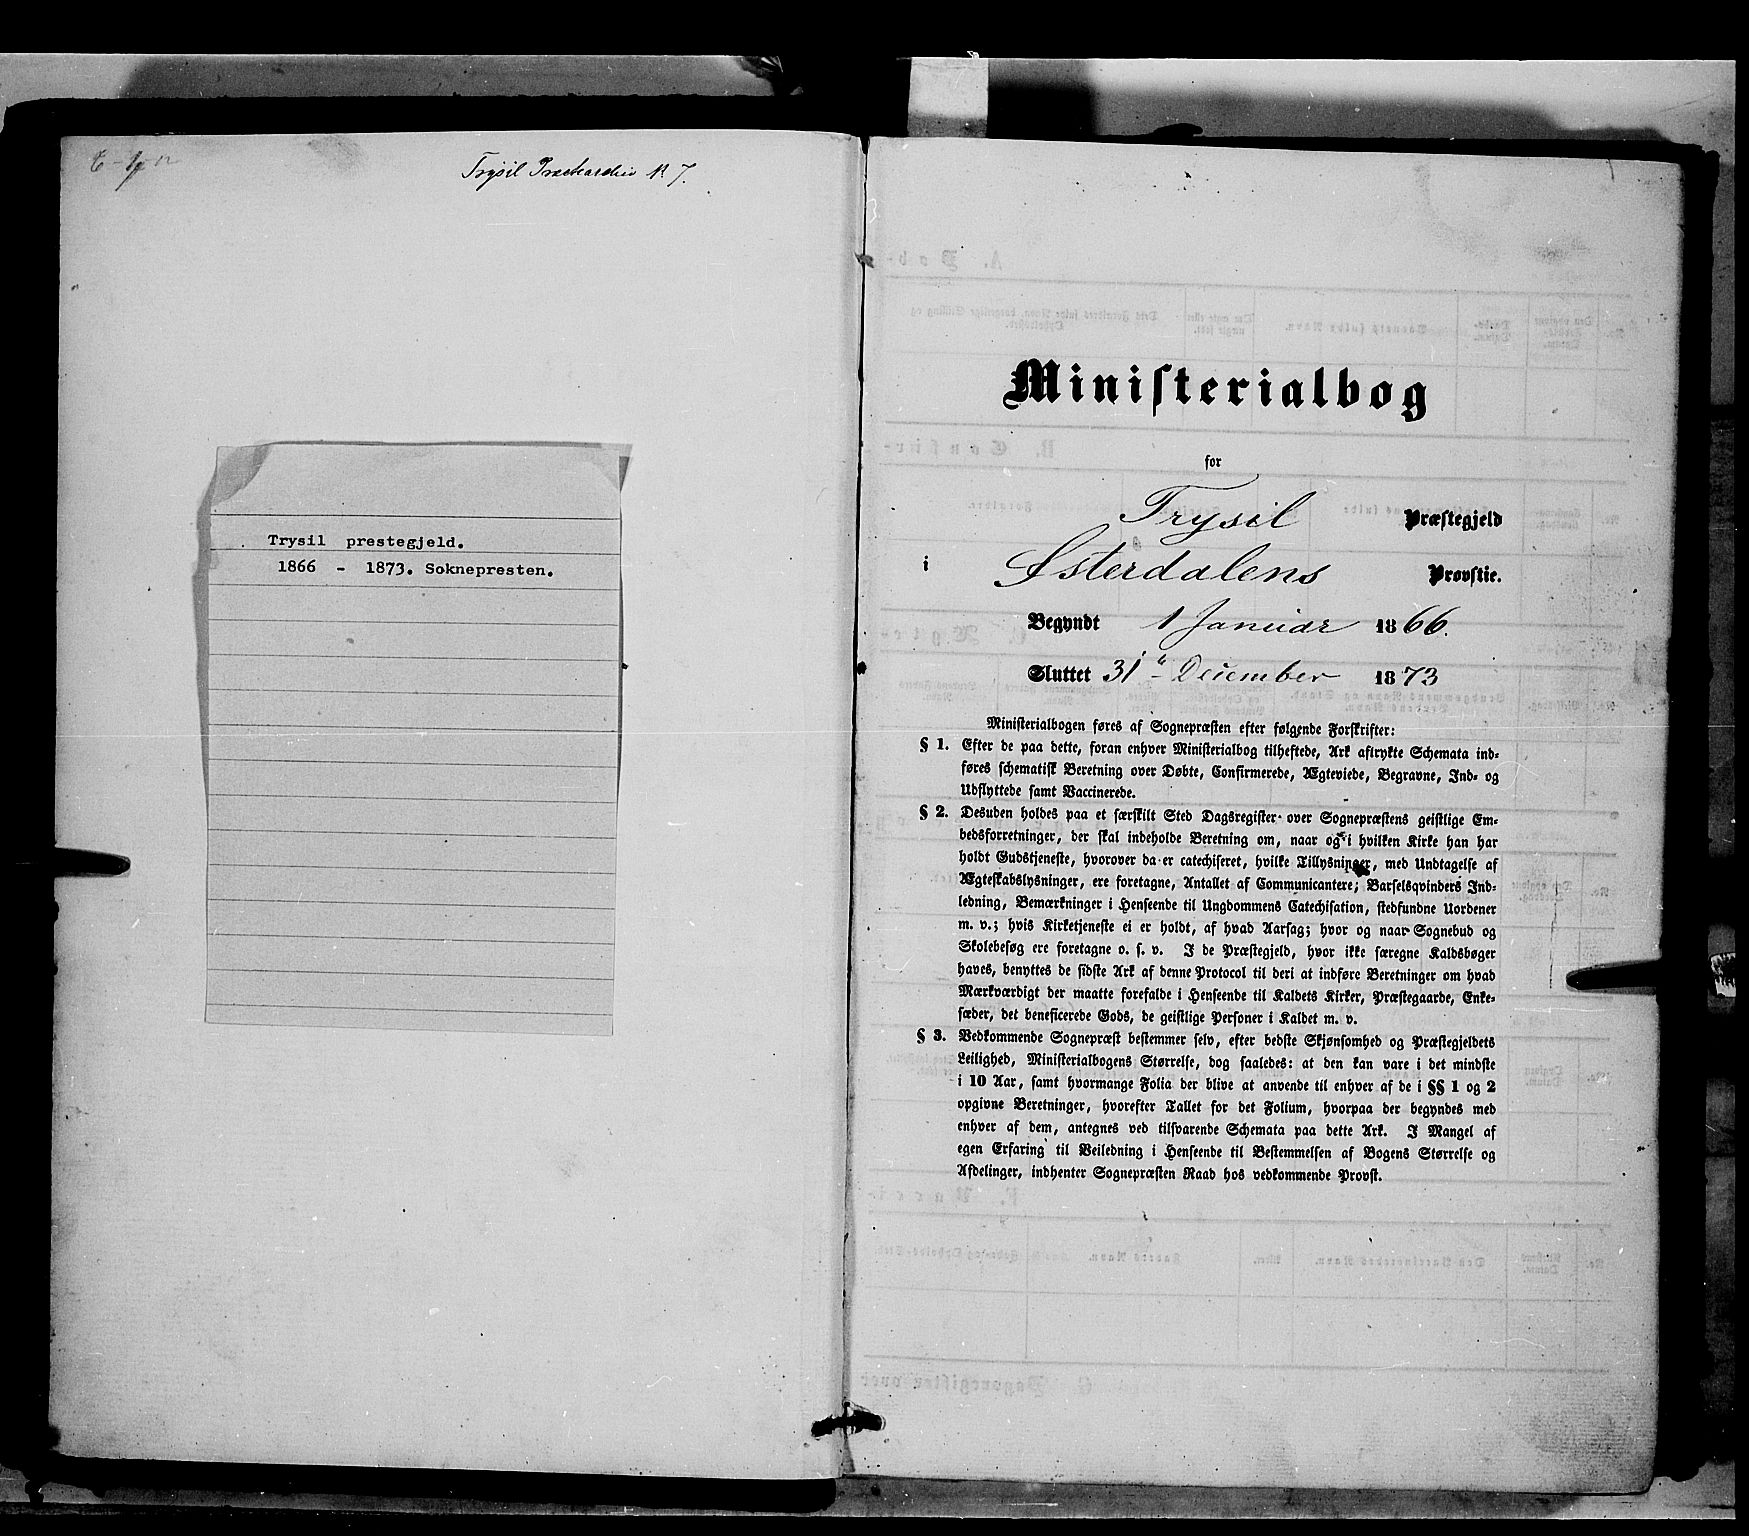 Trysil Præstearchiv N 7.
Trysil prestegjeld.
1866 - 1873. Soknepresten.
Ministerialbog
for
Trysil Præstegjeld
i Østerdalens Provstie.
Begyndt 1 Januar 1866.
Sluttet 31 December 1873
Ministerialbogen føres af Sognepræsten efter følgende Forskrifter:
§ 1. Efter de paa dette, foran enhver Ministerialbog tilheftede, Ark aftrykte Schemata ind-
føres schematisk Beretning over Døbte, Confirmerede, Ægteviede, Begravne, Ind- og
Udflyttede samt Vaccinerede.
§ 2. Desuden holdes paa et særskilt Sted Dagsregister over Sognepræstens geistlige Em-
bedsforretninger, der skal indeholde Beretning om, naar og i hvilken Kirke han har
holdt Gudstjeneste, hvorover da er catechiseret, hvilke Tillysninger, med Undtagelse af
Ægteskabslysninger, ere foretagne, Antallet af Communicantere; Barselsqvinders Ind-
ledning, Bemærkninger i Henseende til Ungdommens Catechisation, stedfundne Uordener
m. v.; hvis Kirketjeneste ei er holdt, af hvad Aarsag; hvor og naar Sognebud og
Skolebesøg ere foretagne o. s. v. I de Præstegjeld, hvor ikke særegne Kaldsbøger
haves, benyttes de sidste Ark af denne Protocol til deri at indføre Beretninger om hvad
Mærkværdigt der maatte forefalde i Henseende til Kaldets Kirker, Præstegaarde, Enke-
sæder, det beneficerede Gods, de geistlige Personer i Kaldet m. v.
§ 3. Vedkommende Sognepræst bestemmer selv, efter bedste Skjønsomhed og Præstegjeldets
Leilighed, Ministerialbogens Størrelse, dog saaledes: at den kan vare i det mindste
i 10 Aar, samt hvormange Folia der blive at anvende til enhver af de i §§ 1 og 2
opgivne Beretninger, hvorefter Tallet for det Folium, hvorpaa der begyndes med
enhver af dem, antegnes ved tilsvarende Schemata paa dette Ark. I Mangel af
egen Erfaring til Veiledning i Henseende til Bestemmelsen af Bogens Størrelse og
Afdelinger, indhenter Sognepræsten Raad hos vedkommende Provst.